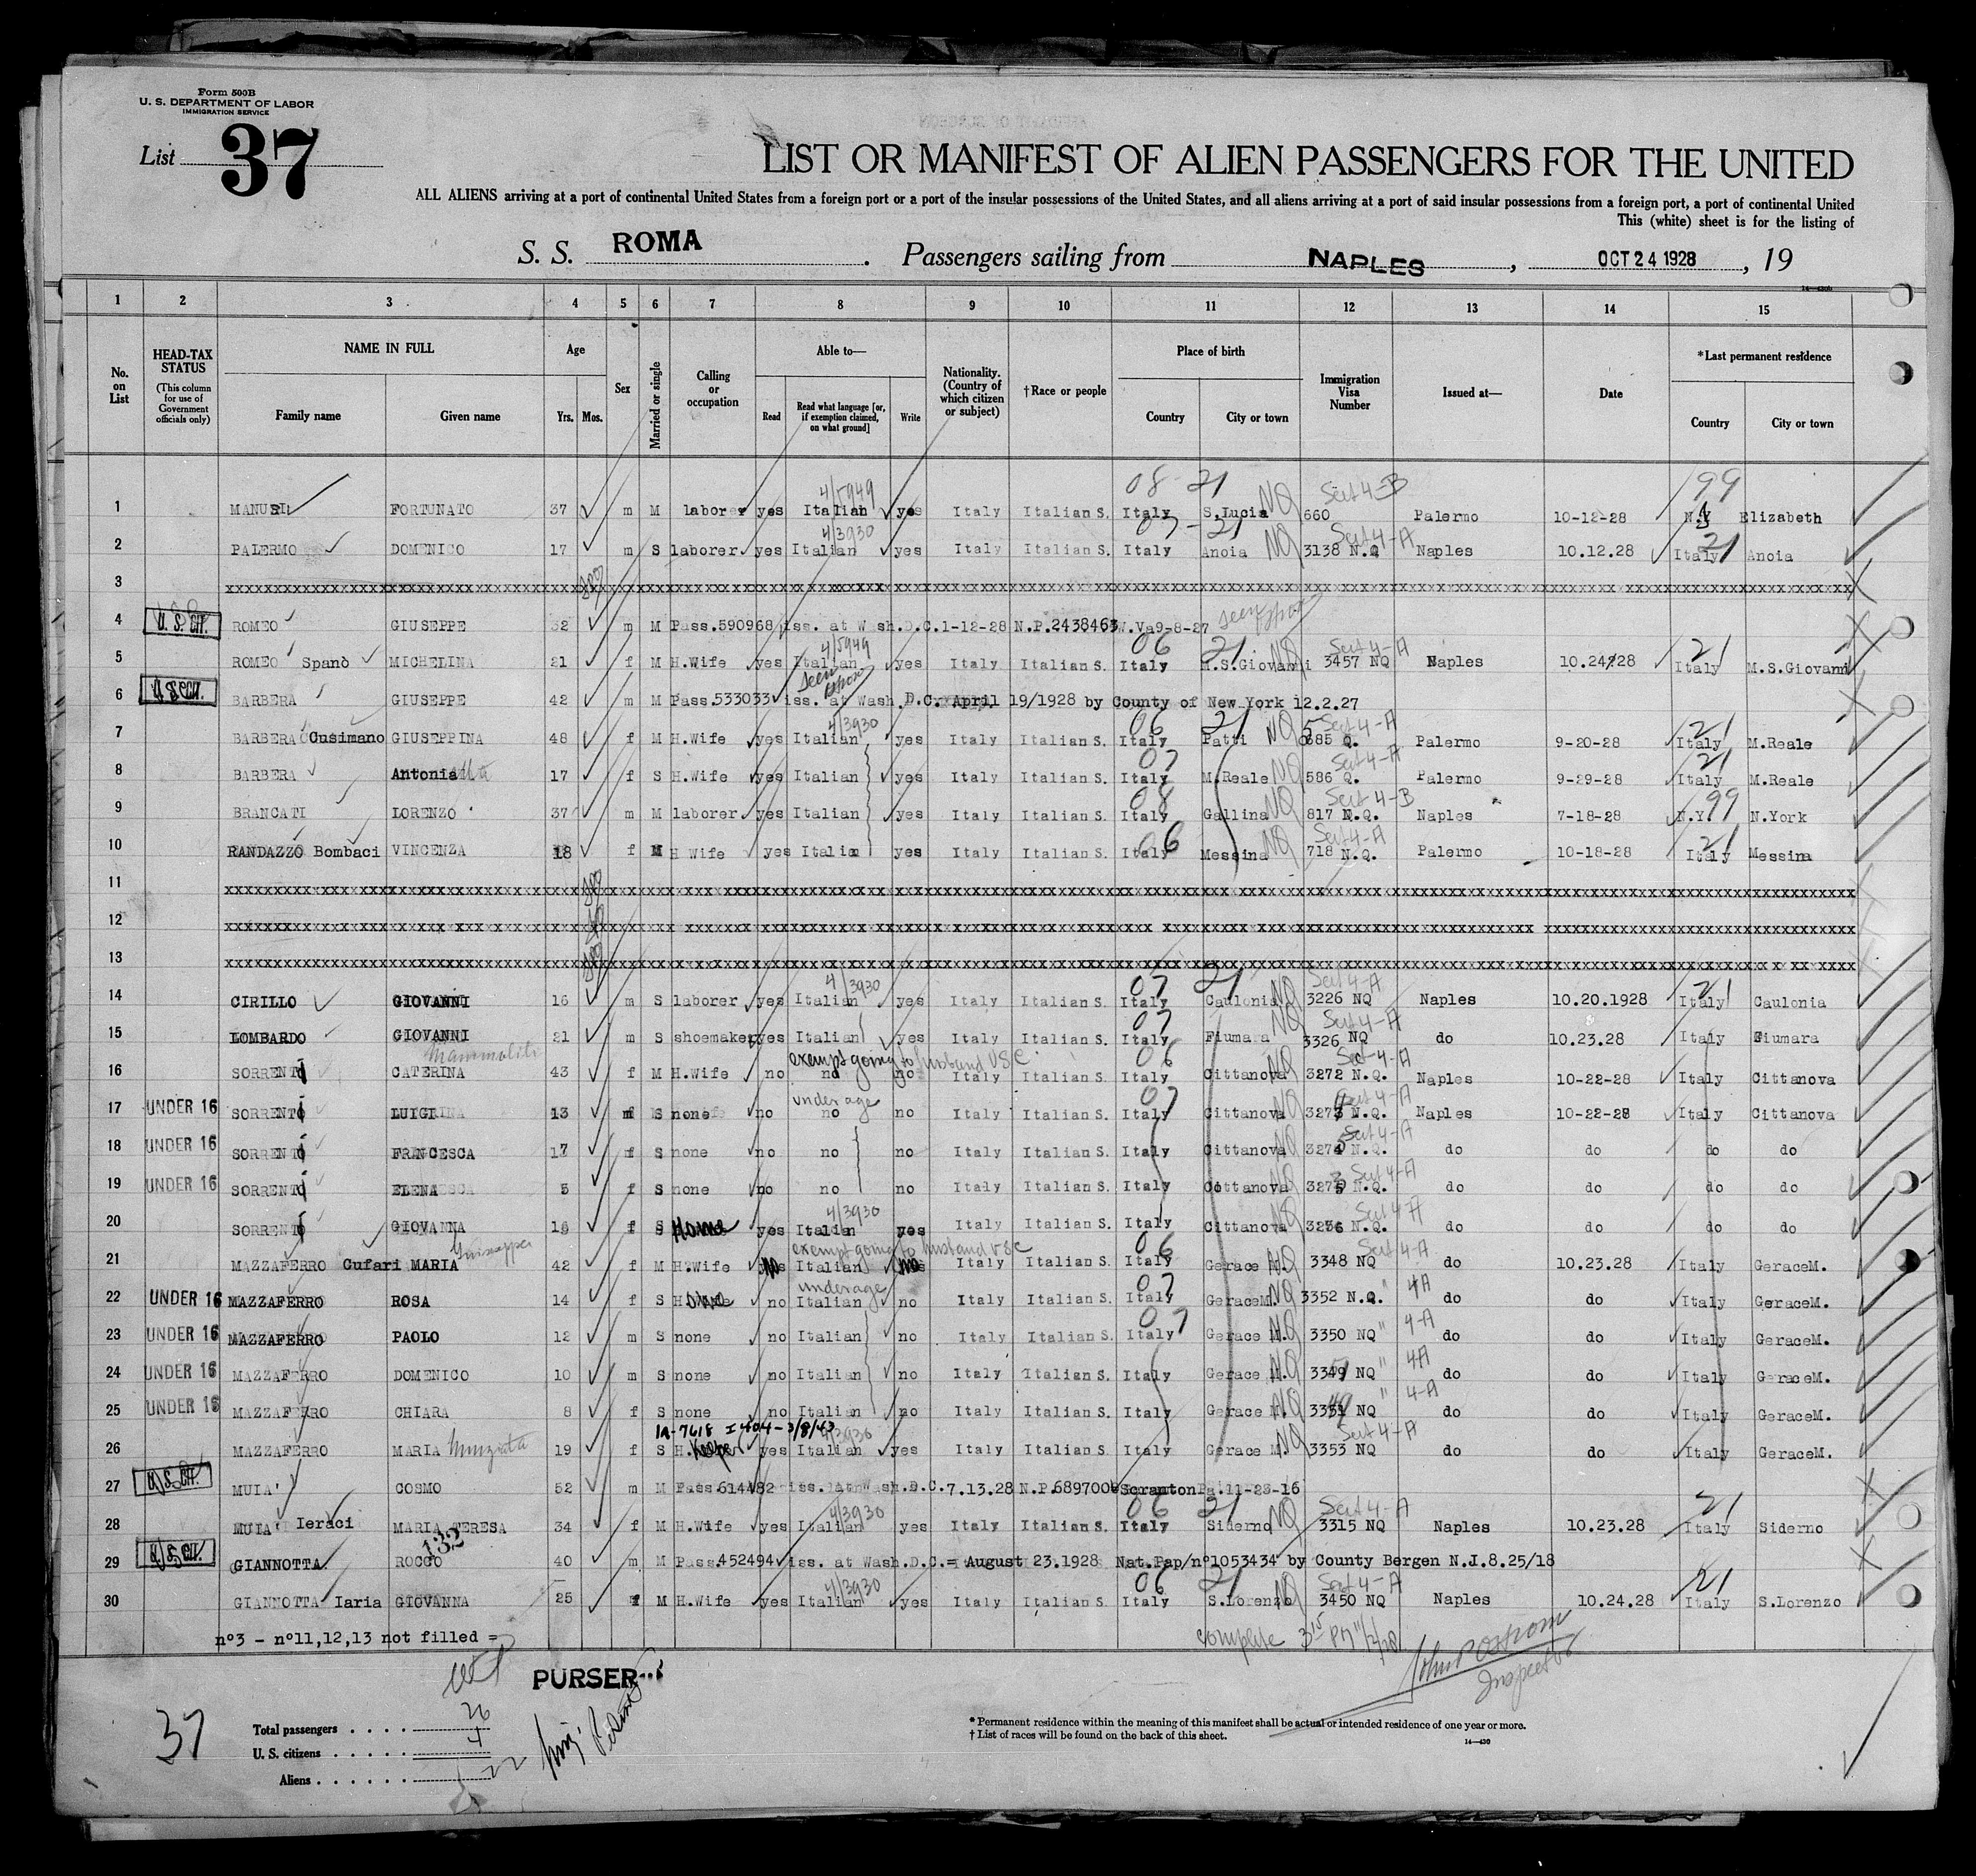 Form 500B
U. S. DEPARTMENT OF LABOR
IMMIGRATION SERVICE
List 37
LIST OR MANIFEST OF ALIEN PASSENGERS FOR THE UNITED
ALL ALIENS arriving at a port of continental United States from a foreign port or a port of the insular possessions of the United States, and all aliens arriving at a port of said insular possessions from a foreign port, a port of continental United
This (white) sheet is for the listing of
S. S. ROMA. Passengers sailing from NAPLES, OCT 24 1928, 19
1 2 3 4 5 6 7 8 9 10 11 12 13 14 15
No. on List
HEAD-TAX STATUS (This column for use of Government officials only)
NAME IN FULL
Family name Given name
Age
Yrs. Mos.
Sex
Married or single
Calling or occupation
Able to—
Read Read what language [or, if exemption claimed, on what ground] Write
Nationality. (Country of which citizen or subject)
†Race or people
Place of birth
Country City or town
Immigration Visa Number
Issued at—
Date
*Last permanent residence
Country City or town
4/5949 08 21 Sect 4-B 99
1 MANUSI FORTUNATO 37 m M laborer yes Italian yes Italy Italian S. Italy S.Lucia NQ 660 Palermo 10-12-28 N.Y Elizabeth
4/3930 07-21 Sect 4-A 21
2 PALERMO DOMENICO 17 m S laborer yes Italian yes Italy Italian S. Italy Anoia NQ 3138 N.Q Naples 10.12.28 Italy Anoia
3 xxxxxxxxxxxxxxxxxxxx
4 U. S. CIT. ROMEO GIUSEPPE 32 m M Pass.590968 iss. at Wash.D.C.1-12-28 N.P.2438463 W.Va9-8-27 seen
4/5949 06 21 Sect 4-A 21
5 ROMEO Spanò MICHELINA 21 f M H.Wife yes Italian yes Italy Italian S. Italy M.S.Giovanni 3457 NQ Naples 10.24/28 Italy M.S.Giovanni
seen
6 U. S. CIT. BARBERA GIUSEPPE 42 m M Pass.533033 iss. at Wash. D.C. April 19/1928 by County of New York 12.2.27
4/3930 06 21 Sect 4-A 21
7 BARBERA Cusimano GIUSEPPINA 48 f M H.Wife yes Italian yes Italy Italian S. Italy Patti NQ 585 Q. Palermo 9-20-28 Italy M.Reale
07 Sect 4-A 21
8 BARBERA Antonia 17 f S H.Wife yes Italian yes Italy Italian S. Italy M.Reale NQ 586 Q. Palermo 9-29-28 Italy M.Reale
08 Sect 4-B 99
9 BRANCATI LORENZO 37 m M laborer yes Italian yes Italy Italian S. Italy Gallina NQ 817 N.Q. Naples 7-18-28 N.Y N.York
06 Sect 4-A 21
10 RANDAZZO Bombaci VINCENZA 18 f M H Wife yes Italian yes Italy Italian S. Italy Messina NQ 718 N.Q. Palermo 10-18-28 Italy Messina
11 xxxxxxxxxxxxxxxxxxxx
12 xxxxxxxxxxxxxxxxxxxx
13 xxxxxxxxxxxxxxxxxxxx
4/3930 07 21 Sect 4-A 21
14 CIRILLO GIOVANNI 16 m S laborer yes Italian yes Italy Italian S. Italy Caulonia NQ 3226 NQ Naples 10.20.1928 Italy Caulonia
07 Sect 4-A
15 LOMBARDO GIOVANNI 21 m S shoemaker yes Italian yes Italy Italian S. Italy Fiumara NQ 3326 NQ do 10.23.28 Italy Fiumara
Mammoliti exempt going to husband USC 06 Sect 4-A
16 SORRENTI CATERINA 43 f M H.Wife no no no Italy Italian S. Italy Cittanova NQ 3272 N.Q. Naples 10-22-28 Italy Cittanova
under age 07 Sect 4-A
17 UNDER 16 SORRENTI LUIGI 13 m S none no no no Italy Italian S. Italy Cittanova NQ N.Q. Naples 10-22-28 Italy Cittanova
Sect 4-A
18 UNDER 16 SORRENTI FRANCESCA f S none no no no Italy Italian S. Italy Cittanova NQ N.Q. do do do do
Sect 4-A
19 UNDER 16 SORRENTI ELENA 5 f S none no no no Italy Italian S. Italy Cittanova NQ N.Q. do do do do
4/3930 Sect 4-A
20 SORRENTI GIOVANNA f S Home yes Italian yes Italy Italian S. Italy Cittanova NQ 3276 N.Q. do do do do
Giuseppa exempt going to husband USC 06 Sect 4-A
21 MAZZAFERRO Cufari MARIA 42 f M H.Wife no Italian no Italy Italian S. Italy Gerace M. NQ 3348 NQ do 10.23.28 Italy GeraceM.
underage 07 " 4A
22 UNDER 16 MAZZAFERRO ROSA 14 f S none no Italian no Italy Italian S. Italy GeraceM. NQ 3352 N.Q. do do Italy GeraceM.
07 " 4-A
23 UNDER 16 MAZZAFERRO PAOLO 12 m S none no Italian no Italy Italian S. Italy Gerace M. NQ 3350 NQ do do Italy GeraceM.
" 4A
24 UNDER 16 MAZZAFERRO DOMENICO 10 m S none no Italian no Italy Italian S. Italy Gerace M. NQ NQ do do Italy GeraceM.
" 4-A
25 UNDER 16 MAZZAFERRO CHIARA 8 f S none no Italian no Italy Italian S. Italy Gerace M. NQ NQ do do Italy GeraceM.
1A-7618 I 404-3/8/43 4/3930 Sect 4-A
26 MAZZAFERRO MARIA Nunziata 19 f S H. Keeper yes Italian yes Italy Italian S. Italy Gerace M. NQ 3353 NQ do do Italy GeraceM.
27 U. S. CIT. MUIA' COSMO 52 m M Pass.614482 iss. at Wash.D.C.7.13.28 N.P.689700 Scranton Pa.11-23-16
4/3930 06 21 Sect 4-A 21
28 MUIA' Ieraci MARIA TERESA 34 f M H.Wife yes Italian yes Italy Italian S. Italy Siderno NQ 3315 NQ Naples 10.23.28 Italy Siderno
132
29 U. S. CIT. GIANNOTTA ROCCO 40 m M Pass.452494 iss. at Wash.D.C.= August 23.1928 Nat.Pap/n°1053434 by County Bergen N.J.8.25/18
4/3930 06 21 Sect 4-A 21
30 GIANNOTTA Iaria GIOVANNA 25 f M H.Wife yes Italian yes Italy Italian S. Italy S.Lorenzo NQ 3450 NQ Naples 10.24.28 Italy S.Lorenzo
n°3 - n°11,12,13 not filled =
complete 3 15 PM 11/2/28
Inspector
PURSER
37
Total passengers . . . . 26
U. S. citizens . . . . 4
Aliens . . . . . . 22
* Permanent residence within the meaning of this manifest shall be actual or intended residence of one year or more.
† List of races will be found on the back of this sheet.
14—430